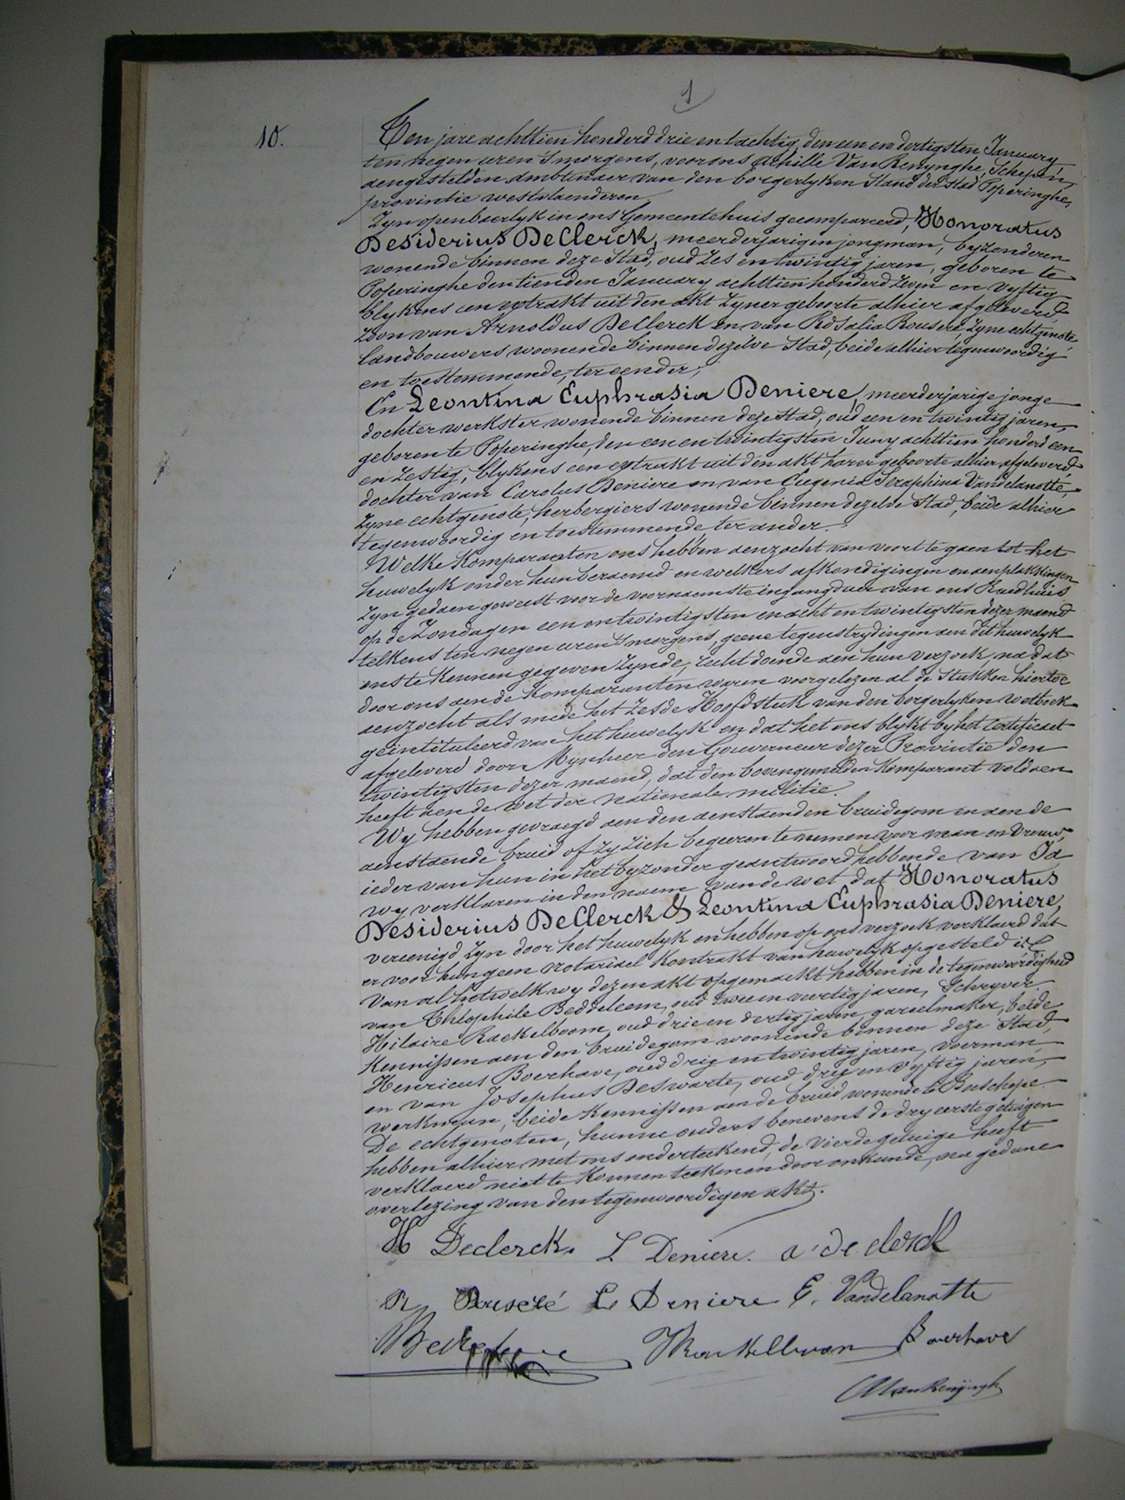 1
10.
Ten jare achttien honderd drie en tachtig, den een en dertigsten January
ten negen uren s'morgens, voor ons Achille Van Renynghe, Schepen,
aengestelden Ambtenaer van den borgerlyken Stand der stad Poperinghe,
provintie westvlaenderen
Zyn openbaerlyk in ons Gemeentehuis gecompareerd, Honoratus
Desiderius DeClerck, meerderjarigen jongman, byzonderen
wonende binnen deze Stad, oud zes en twintig jaren, geboren te
Poperinghe den tienden January achttien honderd zeven en vyftig
blykens een extrakt uit den akt zyner geboorte alhier afgeleverd
Zoon van Arnoldus DeClerck en van Rosalia Rouseré, zyne echtgenote,
landbouwers woonende binnen dezelve Stad, beide alhier tegenwoordig
en toestemmende, ter eender;
En Leontina Euphrasia Deniere, meerderjarige jonge
dochter werkster wonende binnen deze stad, oud een en twintig jaren,
geboren te Poperinghe, den een en twintigsten Juny achttien honderd een
en Zestig, blykens een extrakt uit den akt harer geboorte alhier afgeleverd
dochter van Carolus Deniere en van Eugenia Seraphina Vandelanotte,
zyne echtgenote, herbergiers wonende binnen dezelve Stad, beide alhier
tegenwoordig en toestemmende ter ander.
Welke Komparanten ons hebben aenzocht van voort te gaen tot het
huwelyk onder hun beraemd en welkers afkondigingen en aenplakkingen
zyn gedaen geweest voor de voornaemste ingangdeur van ons Raedhuis
op de Zondagen een en twintigsten en acht en twintigsten dezer maend
telkens ten negen uren s'morgens, geene tegenstrydingen aen dit huwelyk
ons te kennen gegeven zynde, recht doende aen hun verzoek, na dat
door ons aen de Komparanten waren voorgelezen al de Stukken hiertoe
aenzocht als mede het Zesde Hoofdstuk van den borgerlyken wetboek
geintituleerd van het huwelyk en dat het ons blykt by het certificaet
afgeleverd door Mynheer den Gouverneur dezer Provintie den
twintigsten dezer maend, dat den bovengemelden Komparant voldaen
heeft aen de wet der nationale militie.
Wy hebben gevraegd aen den aenstaenden bruidegom en aen de
aenstaende bruid of zy zich begeeren te nemen voor man en vrouw,
ieder van hun in het byzonder geantwoord hebbende van Ja
wy verklaren in den naem van de wet dat Honoratus
Desiderius DeClerck & Leontina Euphrasia Deniere,
vereenigd zyn door het huwelyk en hebben op ons verzoek verklaerd dat
er voor hun geen notariael kontrakt van huwelyk opgesteld is
Van al hetwelk wy dezen akt opgemaekt hebben in de tegenwoordigheid
van Théophile Beddeleem, oud twee en veertig jaren, Schryver
Hilaire Raekelboom, oud drie en dertig jaren, gareelmaker, beide
Kennissen aen den bruidegom woonende binnen deze Stad,
Henricus Boerhave, oud drie en twintig jaren, voerman,
en van Josephus Deswarte, oud drie en vyftig jaren,
werkman, beide kennissen aen de bruid wonende te Boeschepe
De echtgenoten, hunne ouders benevens de dry eerste getuigen
hebben alhier met ons onderteekend, de vierde getuige heeft
verklaerd niet te konnen teekenen door onkunde, na gedane
overlezing van den tegenwoordigen akt.
H Declerck L Deniere. a. de clerck
R Rouseré C. Deniere E. Vandelanotte
HRaekelboom Boerhave
AVanRenynghe